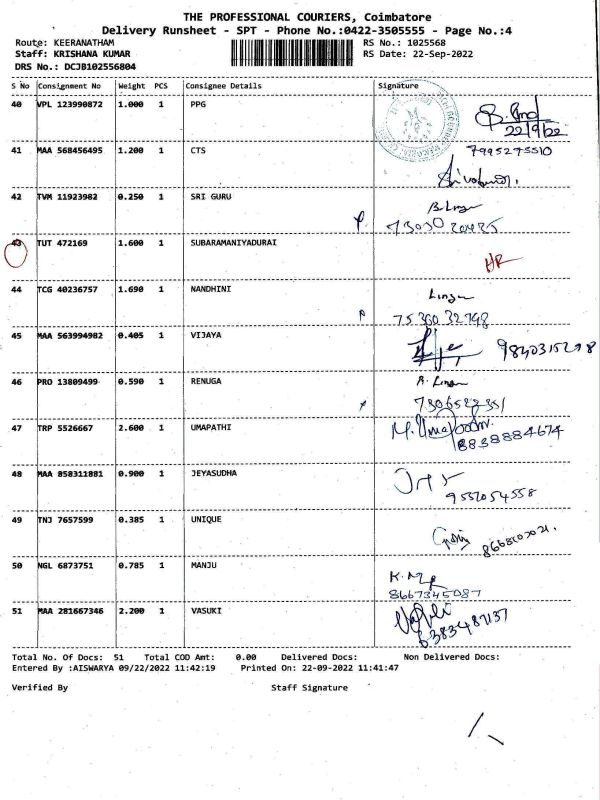 THE PROFESSIONAL COURIERS, Coimbatore
Delivery Runsheet - SPT - Phone No.:0422-3505555 - Page No.:4
Route: KEERANATHAM RS No.: 1025568
Staff: KRISHANA KUMAR RS Date: 22-Sep-2022
DRS No.: DCJB102556804
S No Consignment No Weight PCS Consignee Details Signature
40 VPL 123990872 1.000 1 PPG
22/9/22
41 MAA 568456495 1.200 1 CTS 7995275510
42 TVM 11923982 0.250 1 SRI GURU B. Linga
43 TUT 472169 1.600 1 SUBARAMANIYADURAI
HR
44 TCG 40236757 1.690 1 NANDHINI Linga
75360 32798
45 MAA 563994982 0.405 1 VIJAYA 9840315278
46 PRO 13809499 0.590 1 RENUGA B. Linga
47 TRP 5526667 2.600 1 UMAPATHI
8838884674
48 MAA 858311881 0.900 1 JEYASUDHA
9551054558
49 TNJ 7657599 0.385 1 UNIQUE
50 NGL 6873751 0.785 1 MANJU
8667345087
51 MAA 281667346 2.200 1 VASUKI
6383487137
Total No. Of Docs: 51 Total COD Amt: 0.00 Delivered Docs: Non Delivered Docs:
Entered By :AISWARYA 09/22/2022 11:42:19 Printed On: 22-09-2022 11:41:47
Verified By Staff Signature